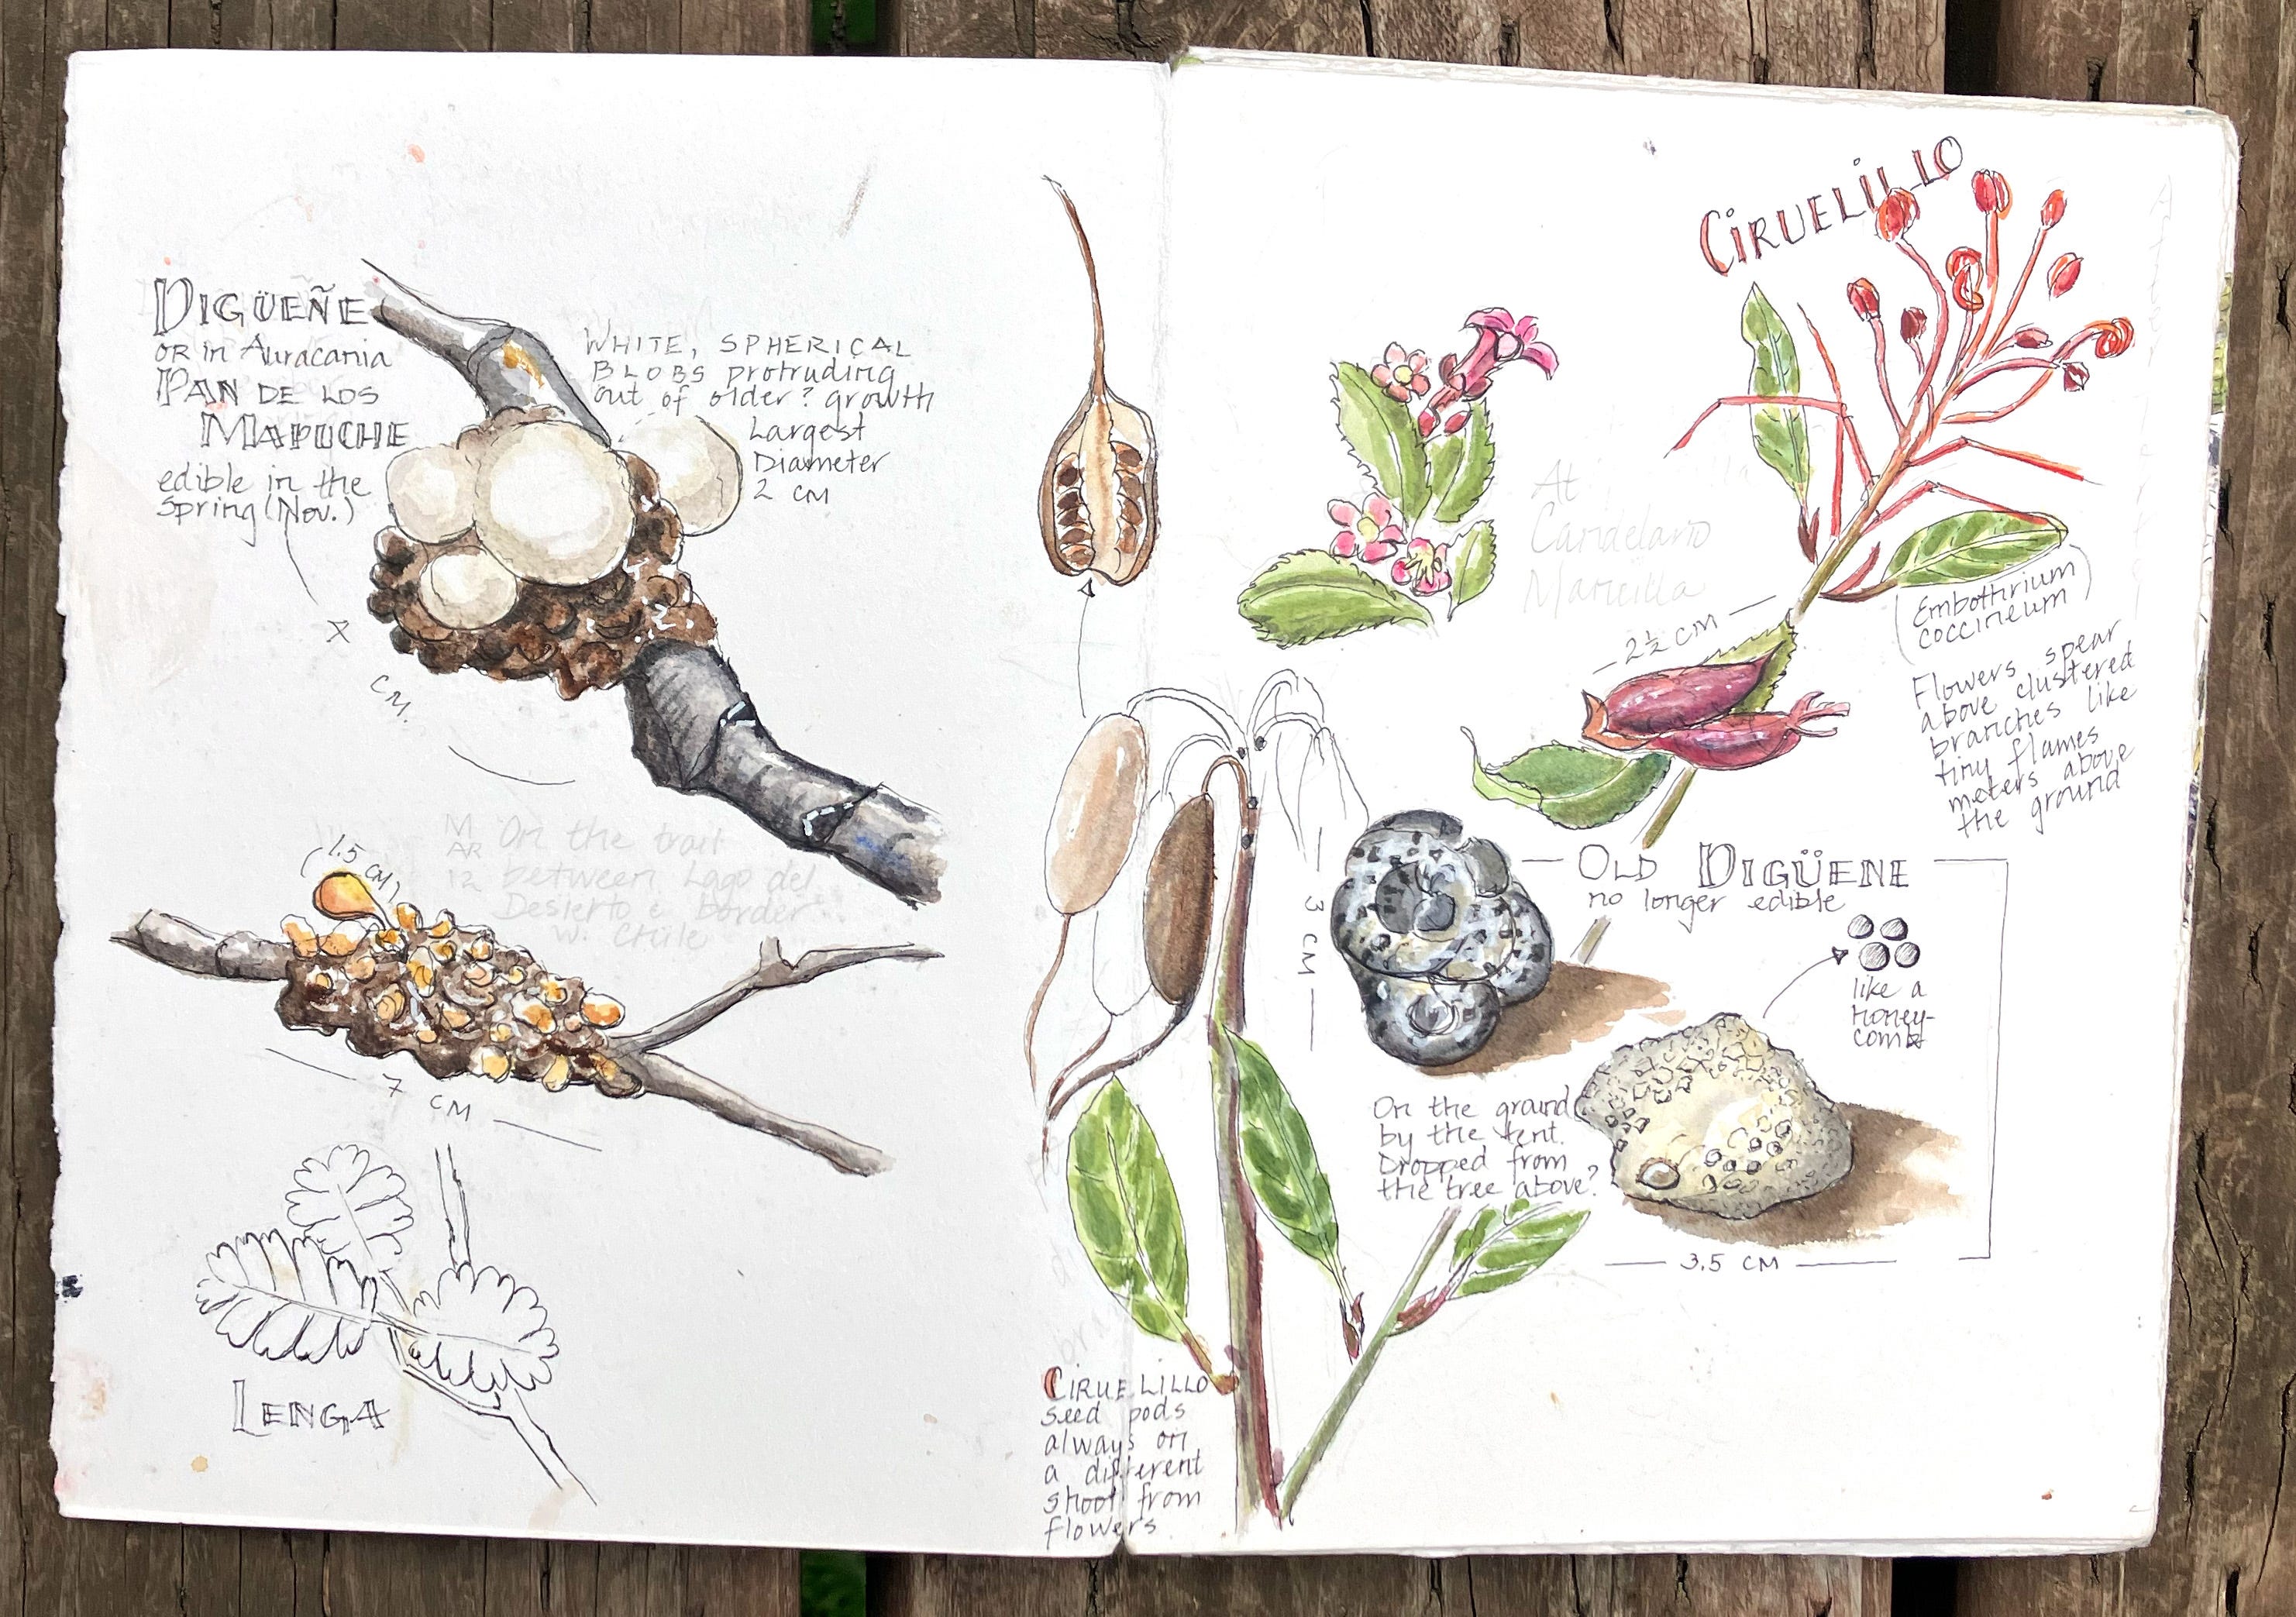 DIGÜEÑE
OR in Auracania
PAN DE LOS
MAPUCHE
edible in the
spring (Nov.)
WHITE, SPHERICAL
BLOBS protruding
out of older? growth
Largest
Diameter
2 CM
7
CM.
MAR 12
On the trail
between Lago del
Desierto & border
W. Chile
(1.5 CM)
7 CM
LENGA
CIRUELILLO
At
Candelario
Mancilla
2½ CM
(Embothrium
coccineum)
Flowers spear
above clustered
branches like
tiny flames
meters above
the ground
OLD DIGÜENE
no longer edible
3 CM
like a
honey-
comb
On the ground
by the tent.
Dropped from
the tree above?
3.5 CM
CIRUELILLO
seed pods
always on
a different
shoot from
flowers